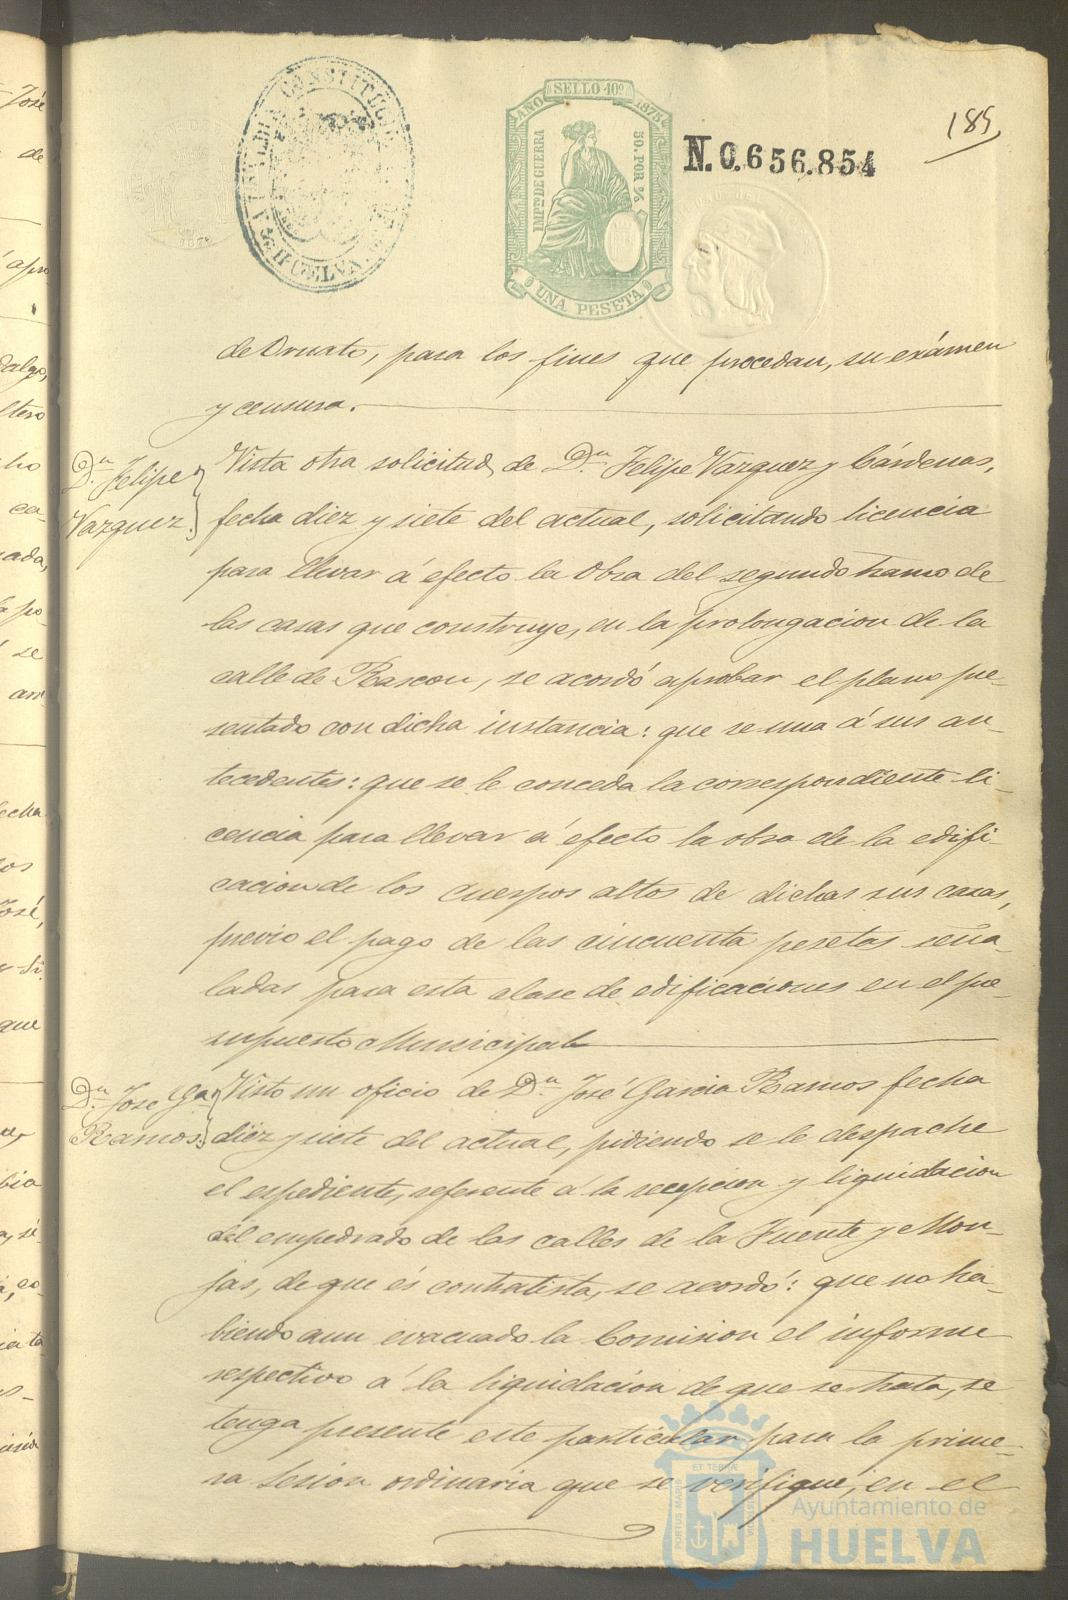 185
ALCALDIA CONSTITUCIONAL DE HUELVA
SELLO 10º
AÑO 1875
IMPTO DE GUERRA
50. POR %
UNA PESETA
N.0.656.854
de Ornato, para los fines que procedan, su exámen
y censura.
Dn Felipe
Vazquez.
Vista otra solicitud, de Dn Felipe Vazquez y Cárdenas,
fecha diez y siete del actual, solicitando licencia
para llevar á efecto la obra del segundo tramo de
las casas que construye, en la prolongacion de la
calle de Rascon, se acordó aprobar el plano pre-
sentado con dicha instancia: que se una á sus an-
tecedentes: que se le conceda la correspondiente li-
cencia para llevar á efecto la obra de la edifi-
cacion de los cuerpos altos de dichas sus casas,
previo el pago de las cincuenta pesetas seña-
ladas para esta clase de edificaciones en el pre-
supuesto Municipal.
Dn José Ga
Ramos.
Visto un oficio de Dn José Garcia Ramos fecha
diez y siete del actual, pidiendo se le despache
el espediente, referente á la recepcion y liquidacion
del empedrado de las calles de la Fuente y Mon-
jas, de que és contratista, se acordó: que no ha-
biendo aun evacuado la Comision el informe
respectivo á la liquidacion de que se trata, se
tenga presente este particular para la prime-
ra sesion ordinaria que se verifique, en el
Ayuntamiento de
HUELVA